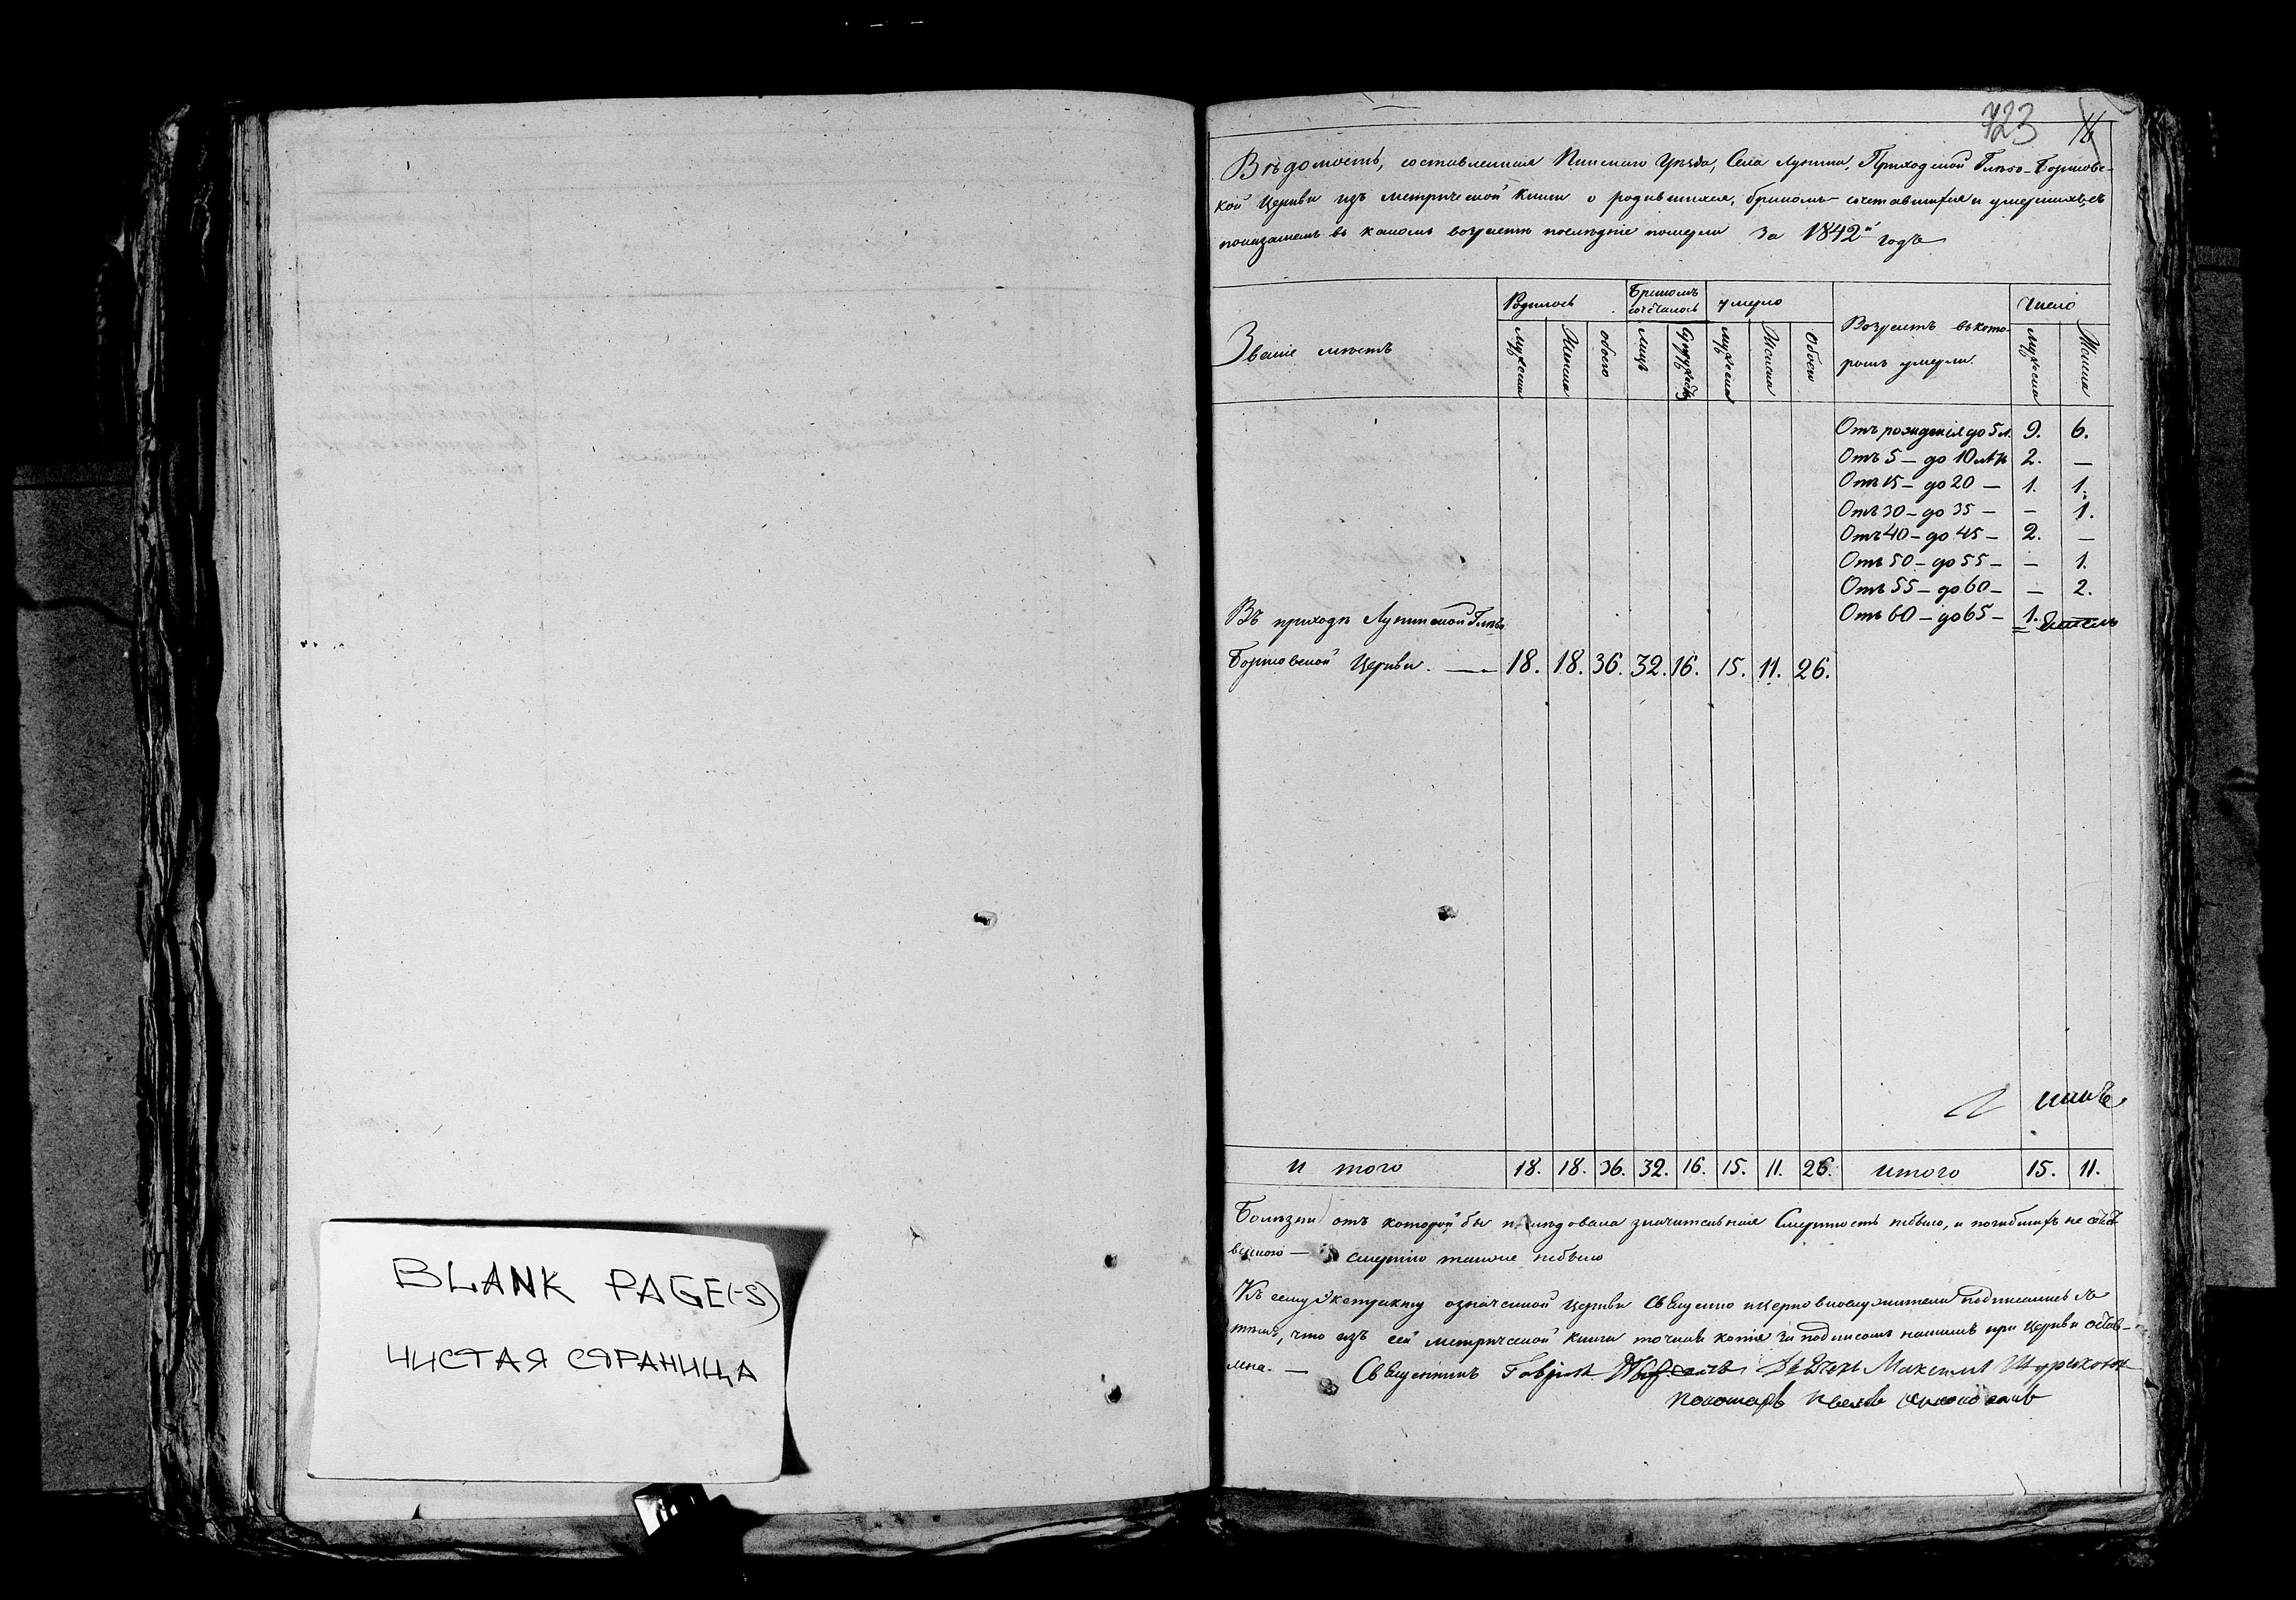 BLANK PAGE(-S)
ЧИСТАЯ СТРАНИЦА
723
Вѣдомость, составленная Пинскаго Уѣзда, Села Лунина, Приходской Глѣбо-Борисовс-
кой Церкви изъ метрической книги о родившихся, бракомъ сочетавшихся и умершихъ, съ
показаніемъ въ какомъ возрастѣ послѣдніе померли за 1842й годъ
Званіе мѣстъ
Родилось
Бракомъ
сочеталось
умерло
Возрастъ въ кото-
ромъ умерли.
Число
Мужеска Женска обоего Лицъ Супружествъ Мужеска Женска Обоего Мужеска Женска
Отъ рожденія до 5 л. 9. 6.
Отъ 5 — до 10 лѣтъ 2. —
Отъ 15 — до 20 — 1. 1.
Отъ 30 — до 35 — — 1.
Отъ 40 — до 45 — 2. —
Отъ 50 — до 55 — — 1.
Отъ 55 — до 60 — — 2.
Отъ 60 — до 65 — 1.
Въ приходѣ Лунинской Глѣбо
Борисовской Церкви. — 18. 18. 36. 32. 16. 15. 11. 26.
и того 18. 18. 36. 32. 16. 15. 11. 26. итого 15. 11.
Болѣзни отъ которой бы послѣдовала значительная Смертность небыло, и погибшихъ не собст
венною — смертію также небыло
Къ сему Экстракту означенной Церкви Священно и церковнослужители подписались въ
томъ, что изъ сей метрической книги точная копія за подписомъ нашимъ при Церкви остав-
лена. — Священникъ Гавріилъ Дьячокъ Максимъ
Пономарь